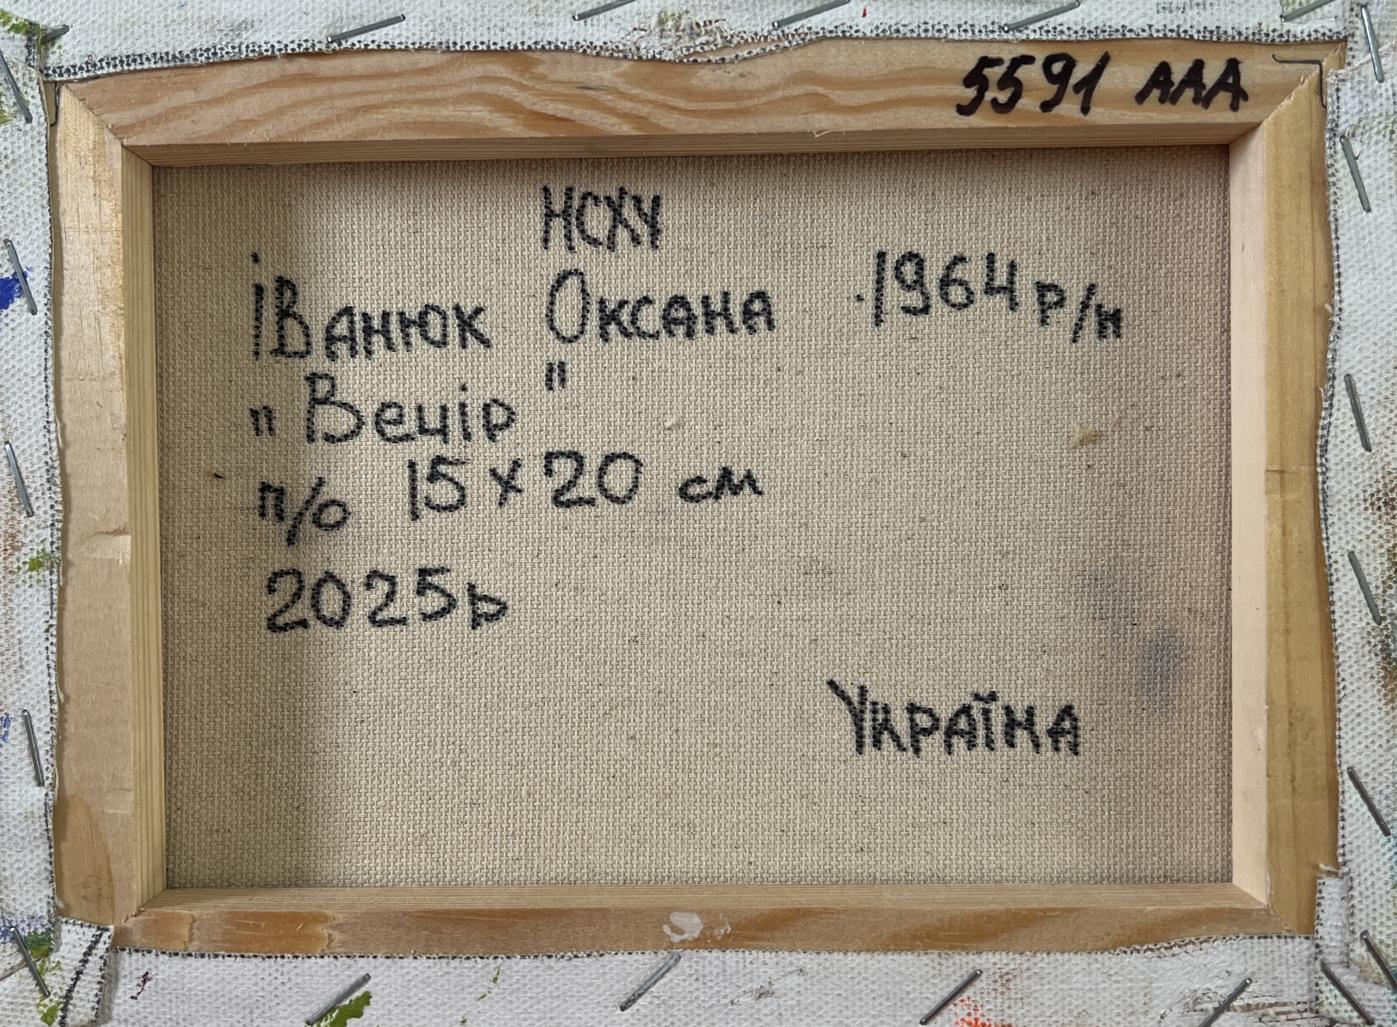 5591 ААА
НСХУ
Іванюк Оксана 1964 р/н
"Вечір"
п/о 15 х 20 см
2025р
Україна